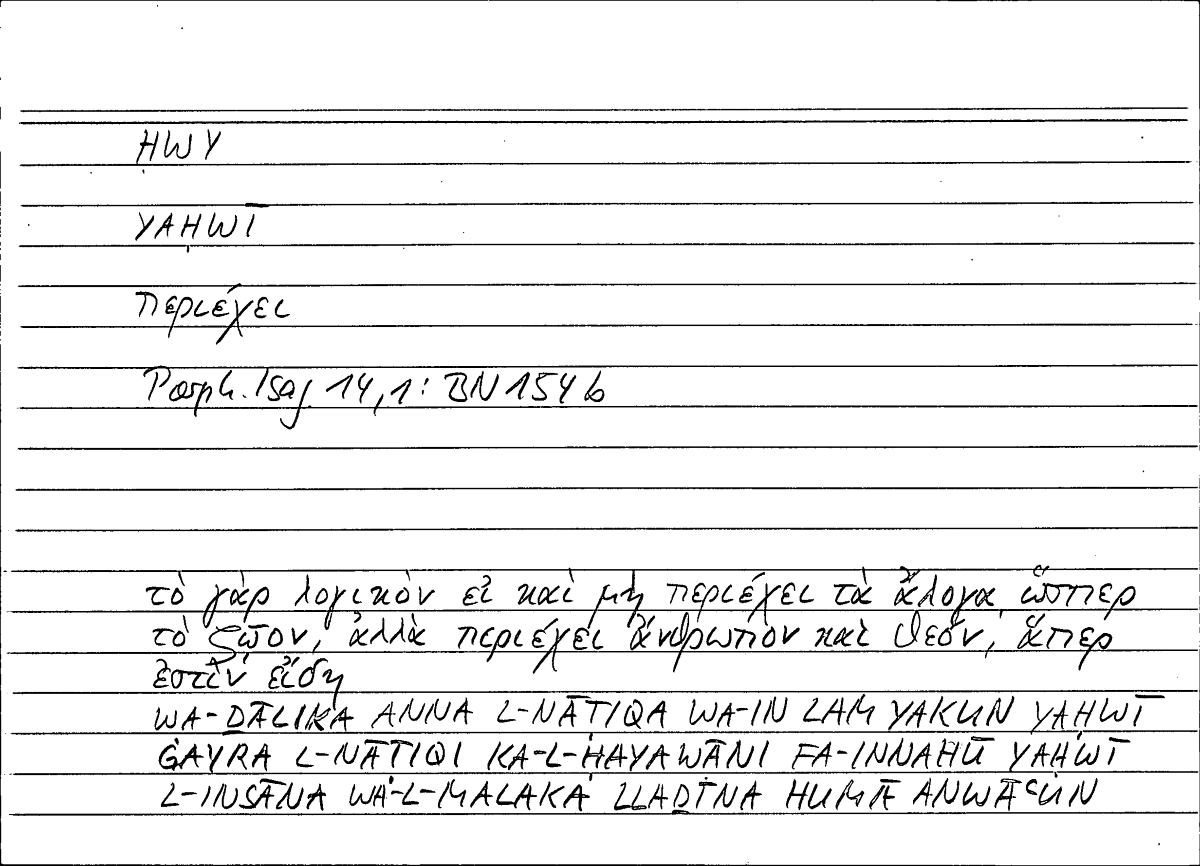 ḤWY
YAḤWĪ
περιέχει
Porph. Isag 14,1: BN 154 b
τὸ γὰρ λογικὸν εἰ καὶ μὴ περιέχει τὰ ἄλογα ὥσπερ
τὸ ζῷον, ἀλλὰ περιέχει ἄνθρωπον καὶ θεόν, ἅπερ
ἐστὶν εἴδη
WA-ḎĀLIKA ANNA L-NĀṬIQA WA-IN LAM YAKUN YAḤWĪ
ĠAYRA L-NĀṬIQI KA-L-ḤAYAWĀNI FA-INNAHŪ YAḤWĪ
L-INSĀNA WA-L-MALAKA LLAḎĪNA HUMĀ ANWĀʿUN